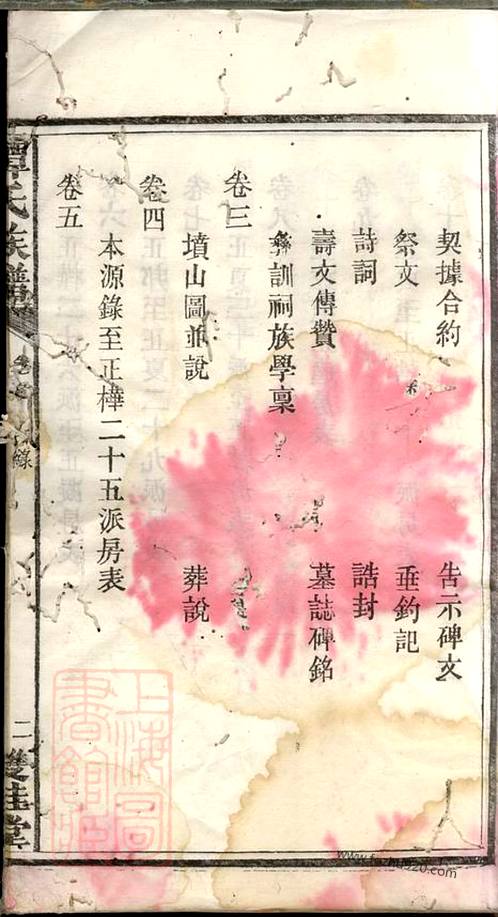 契據合約 告示碑文
祭文 垂釣記
詩詞 誥封
壽文傳贊 墓誌碑銘
彝訓祠族學稟
卷三
墳山圖並說 葬說
卷四
本源錄至正樺二十五派房表
卷五
氏族譜
二
雙桂堂
上海圖書館藏